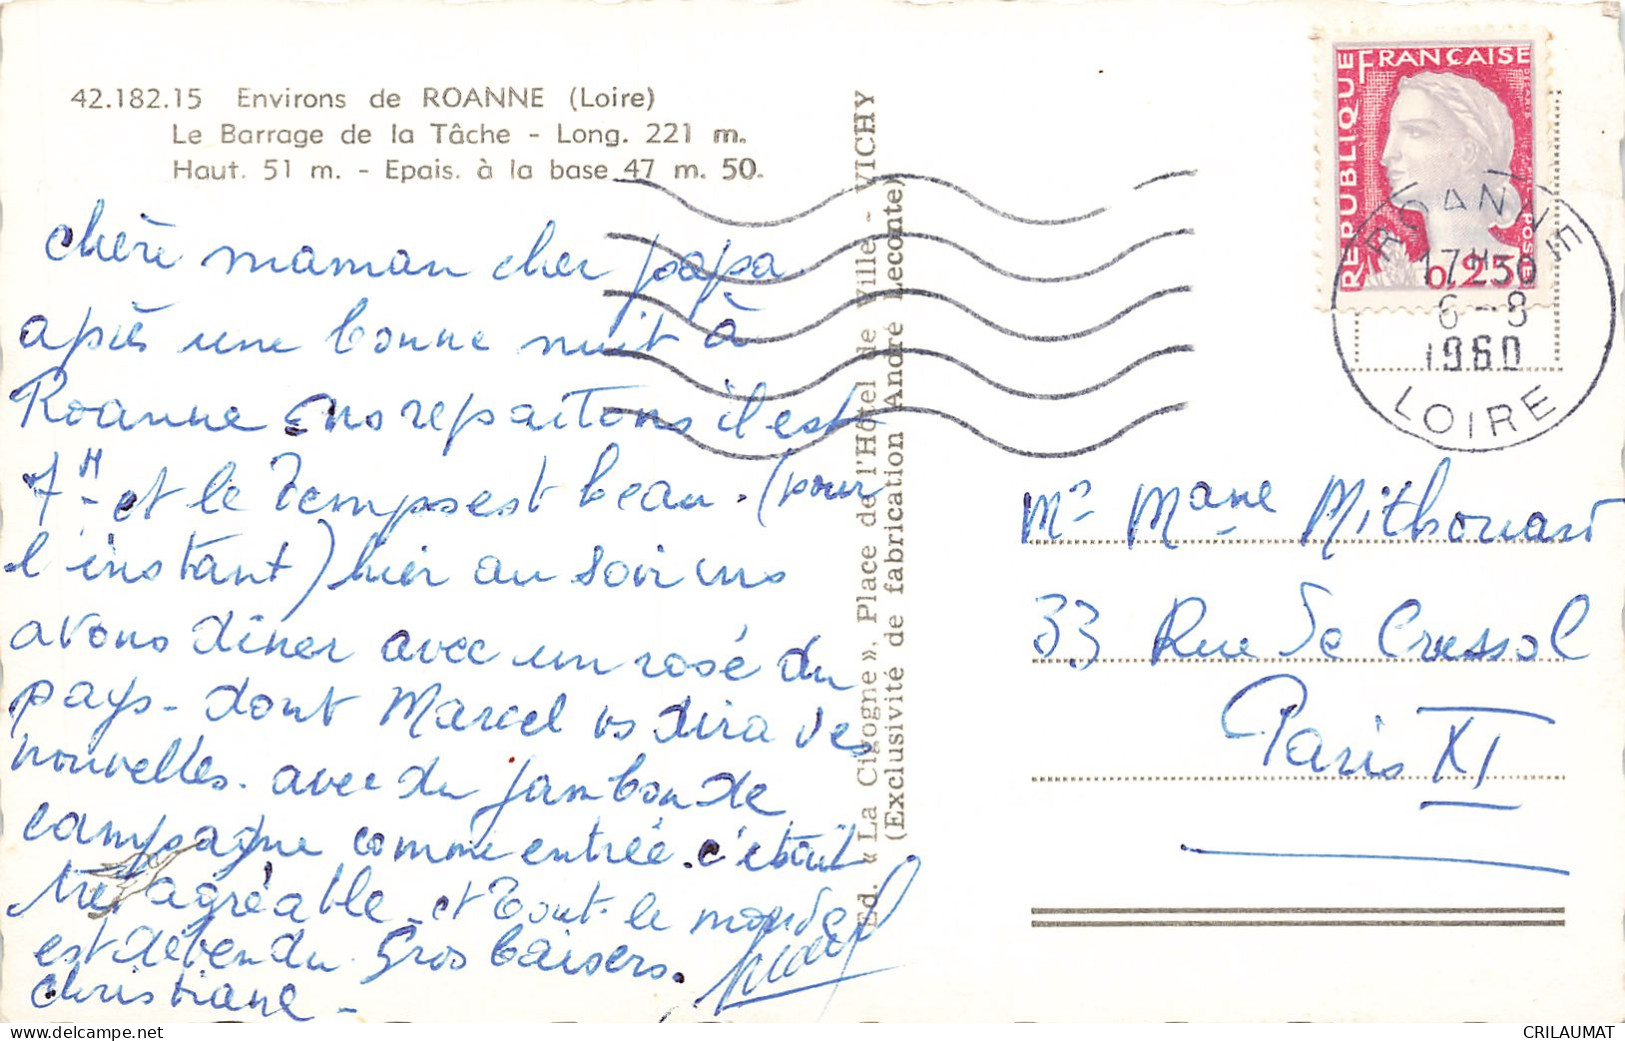 42.182.15 Environs de ROANNE (Loire)
Le Barrage de la Tâche - Long. 221 m.
Haut. 51 m. - Epais. à la base 47 m. 50.
chère maman cher papa
après une bonne nuit à
Roanne ns repartons il est
7H et le temps est beau. (pour
l'instant) hier au soir ns
avons dîner avec un rosé du
pays - dont Marcel vs dira des
nouvelles. avec du jambon de
campagne comme entrée. c'était
très agréable - et tout le monde
est détendu. Gros baisers.
Christiane -
Marcel
Ed. « La Cigogne », Place de l'Hôtel de Ville - VICHY
(Exclusivité de fabrication André Leconte)
REPUBLIQUE FRANÇAISE
POSTES
0,25
ROANNE
17H30
6 - 8
1960
LOIRE
Mr Mme Mithouard
33 Rue de Crussol
Paris XI
delcampe.net
CRILAUMAT